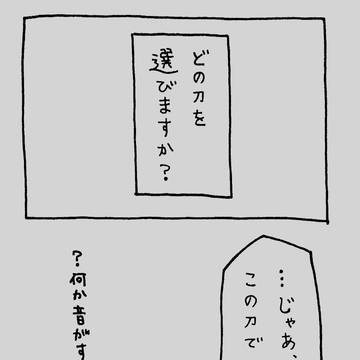 どの刀を
選びますか？
…じゃあ、
この刀で
？何か音がす